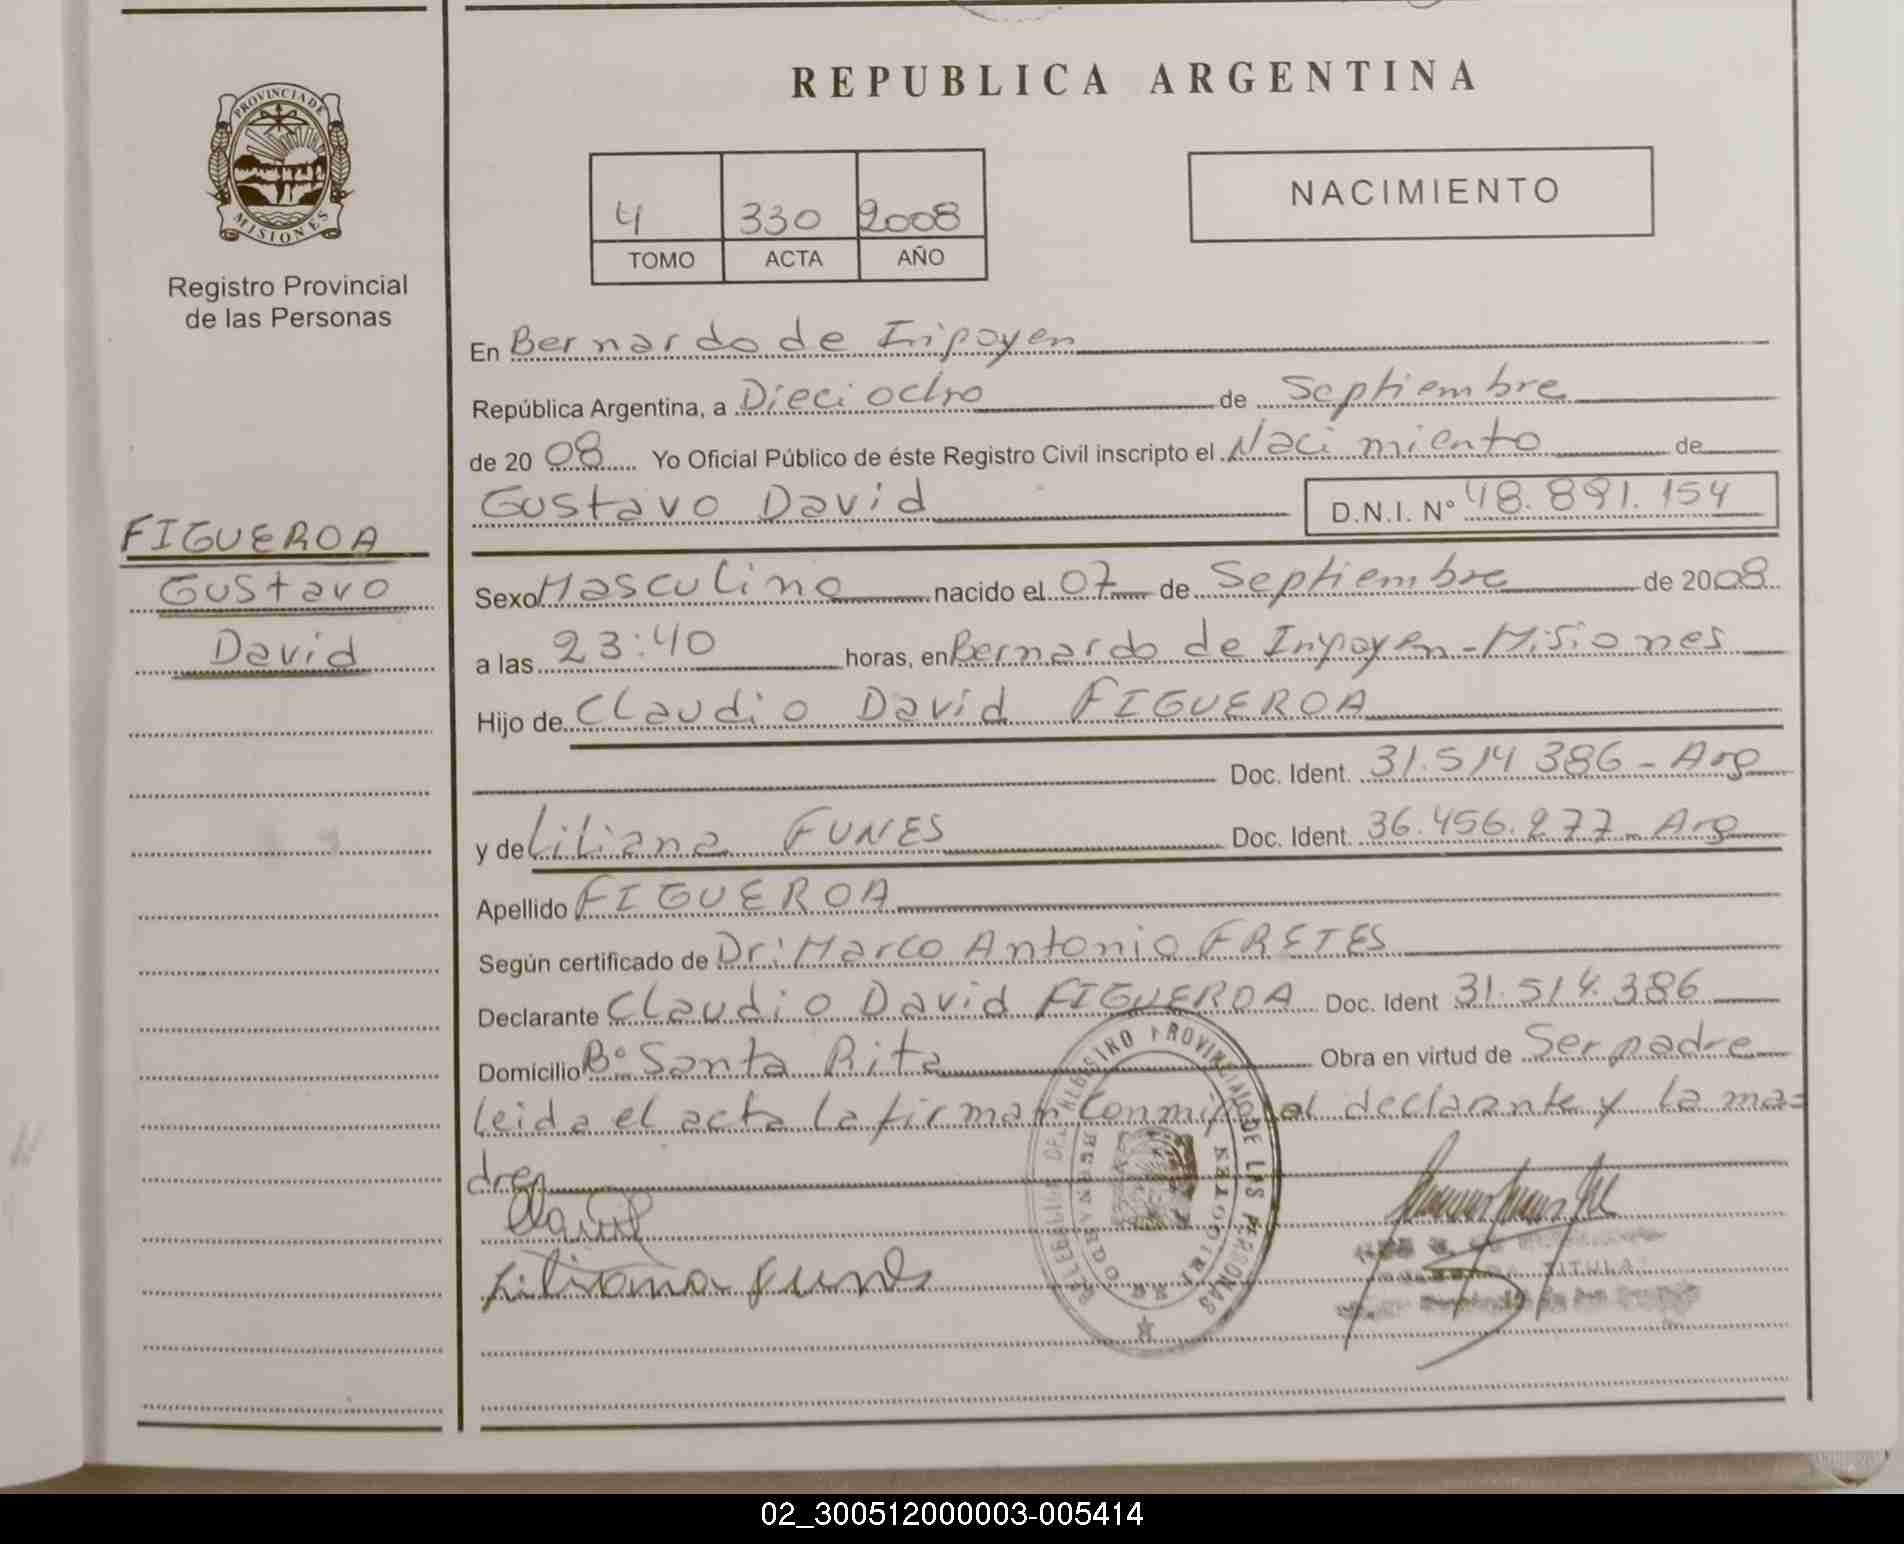 REPUBLICA ARGENTINA
PROVINCIA DE
MISIONES
Registro Provincial
de las Personas
NACIMIENTO
4 330 2008
TOMO ACTA AÑO
En Bernardo de Irigoyen
República Argentina, a Dieciocho de Septiembre
de 20 08 Yo Oficial Público de éste Registro Civil inscripto el Nacimiento de
Gustavo David D.N.I. Nº 48.891.154
FIGUEROA
Gustavo
David
Sexo Masculino nacido el 07 de Septiembre de 2008
a las 23:40 horas, en Bernardo de Irigoyen - Misiones
Hijo de Claudio David FIGUEROA
Doc. Ident. 31.514.386 - Arg
y de Liliana FUNES Doc. Ident. 36.456.277 - Arg
Apellido FIGUEROA
Según certificado de Dr: Marco Antonio FRETES
Declarante Claudio David FIGUEROA Doc. Ident 31.514.386
Domicilio Bº Santa Rita Obra en virtud de Ser padre
Leida el acta la firman conmigo el declarante y la ma=
dre
Liliana Funes
TITULAR
02_300512000003-005414